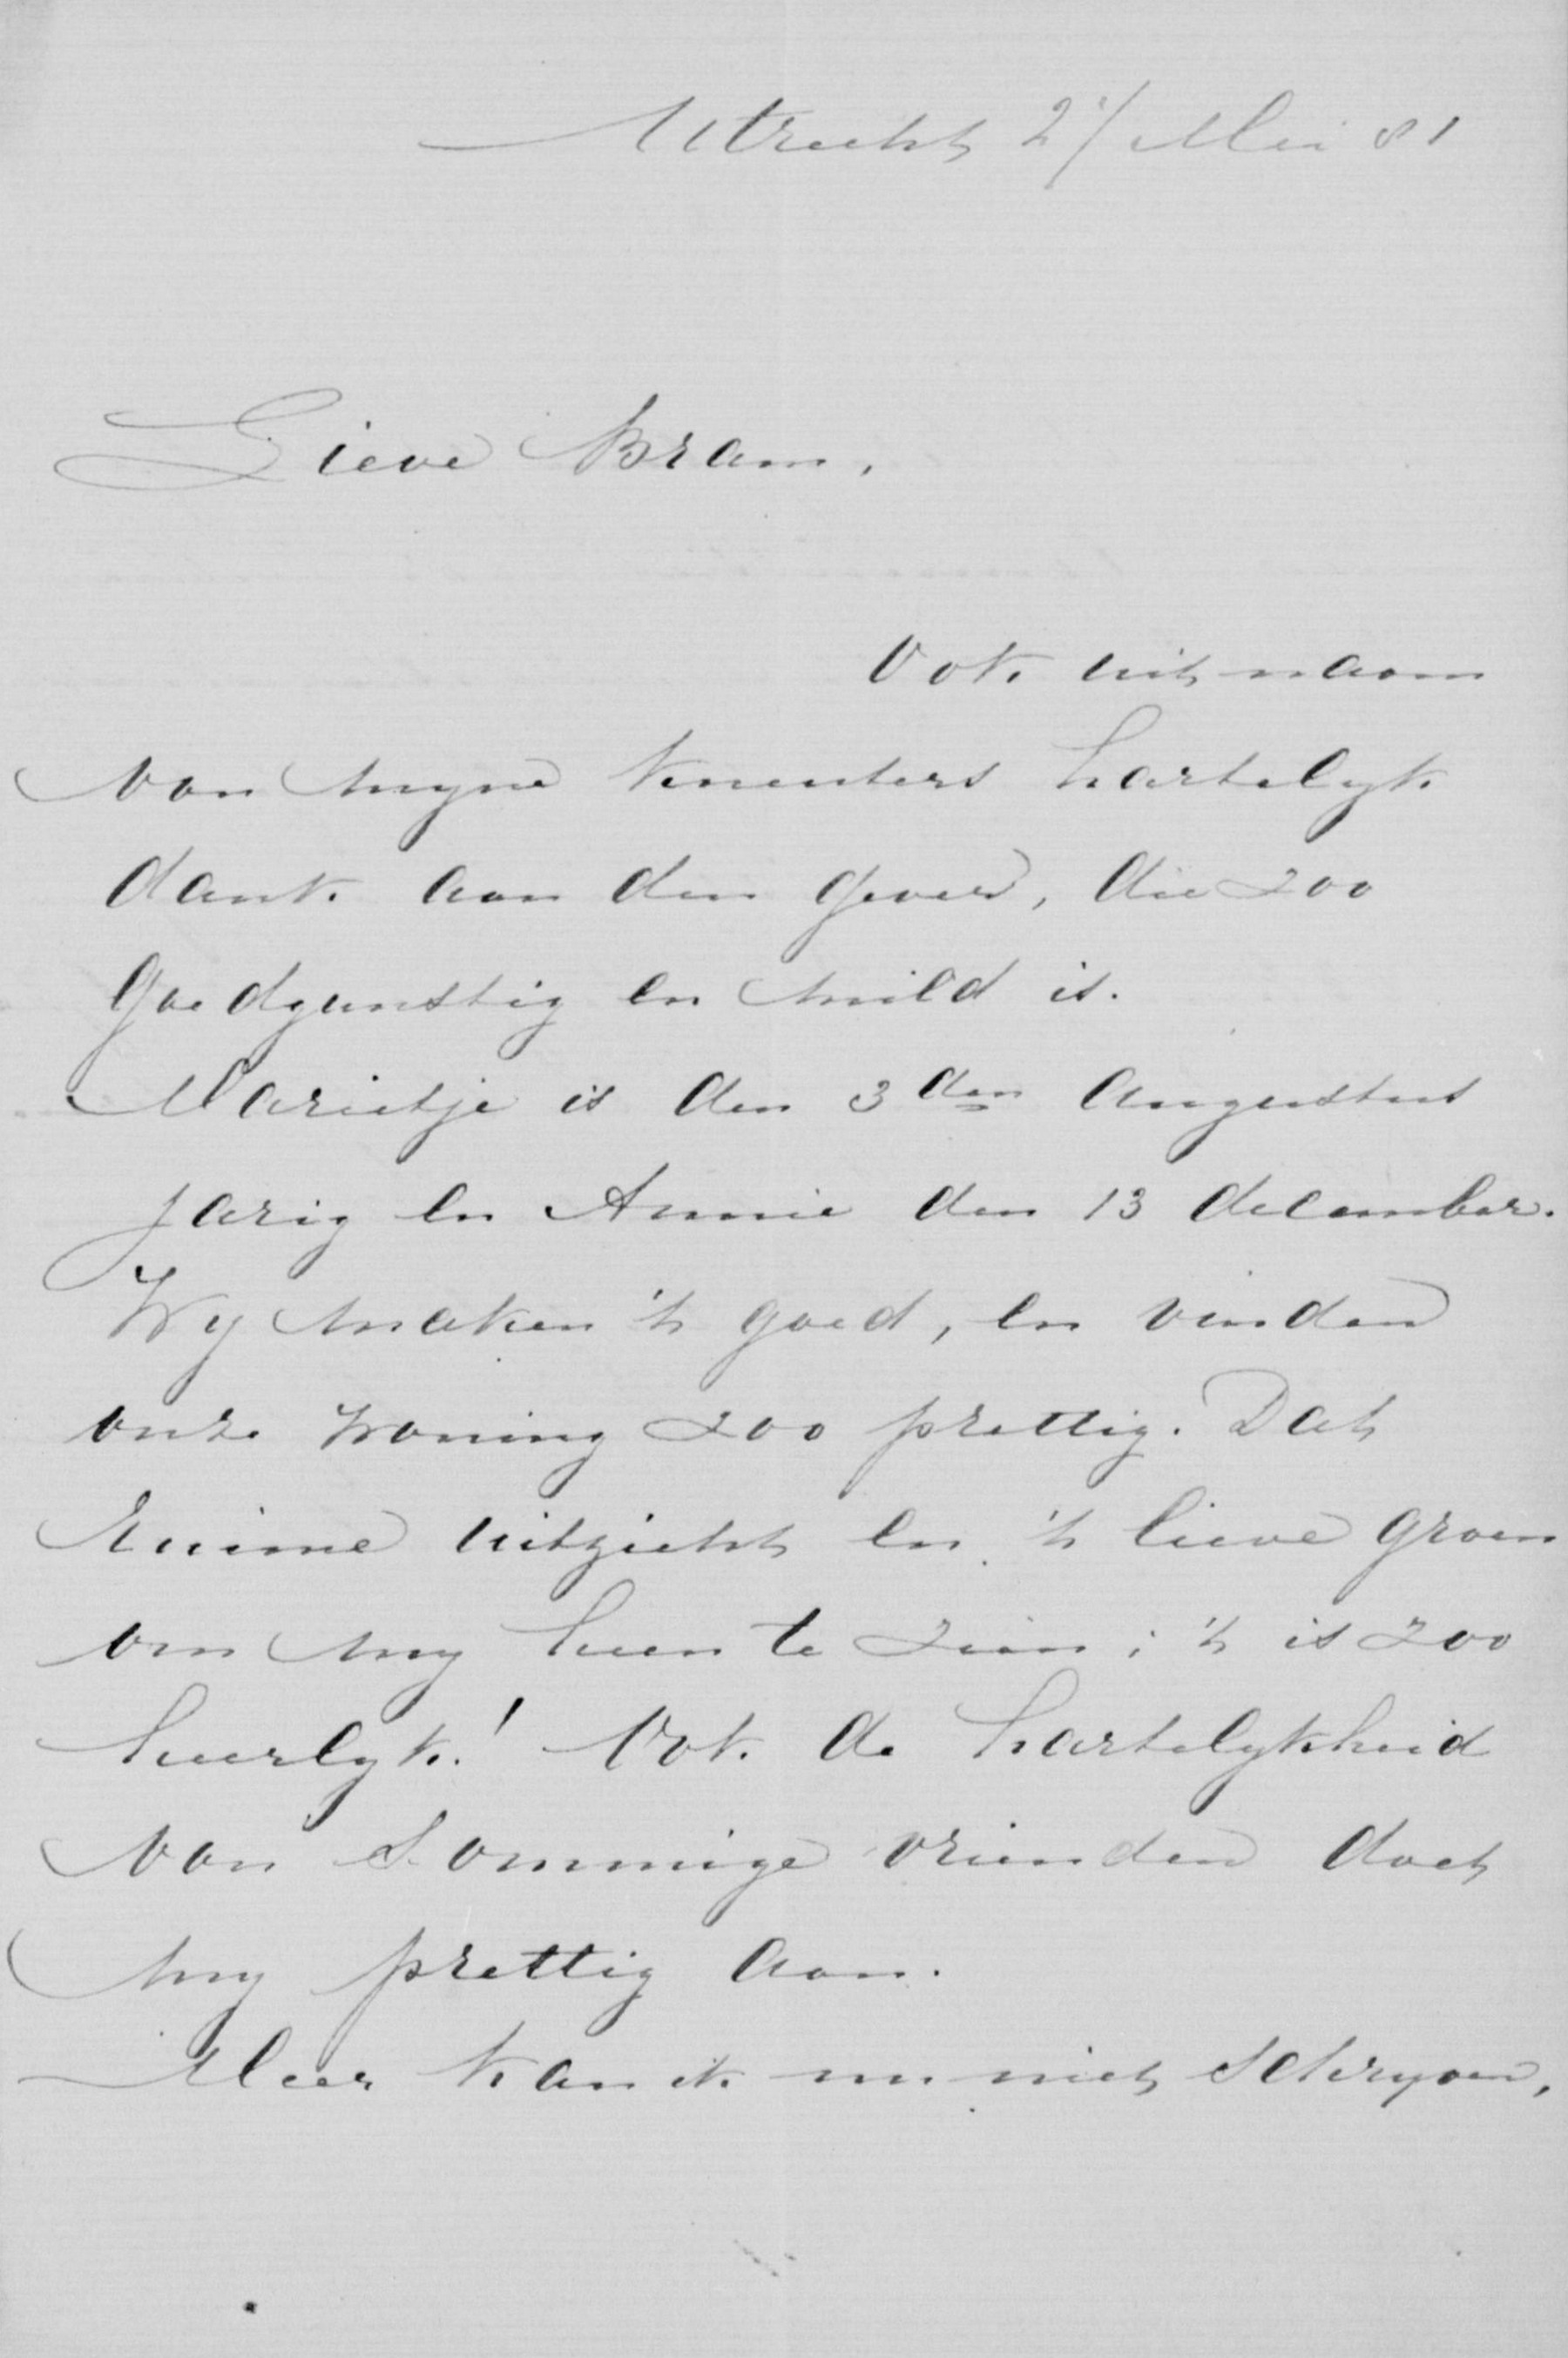 Utrecht 21/ Mei 81
Lieve Bram,
Ook uit naam
van myne kneuters hartelyk
dank aan den gever, die zoo
goedgunstig en mild is.
Marietje is den 3den Augustus
jarig en Annie den 13 december.
Wy maken 't goed, en vinden
onze woning zoo prettig. Dat
ruime uitzicht en 't lieve groen
om my heen te zien; 't is zoo
heerlyk! Ook de hartelykheid
van sommige vrienden doet
my prettig aan.
Meer kan ik nu niet schryven,